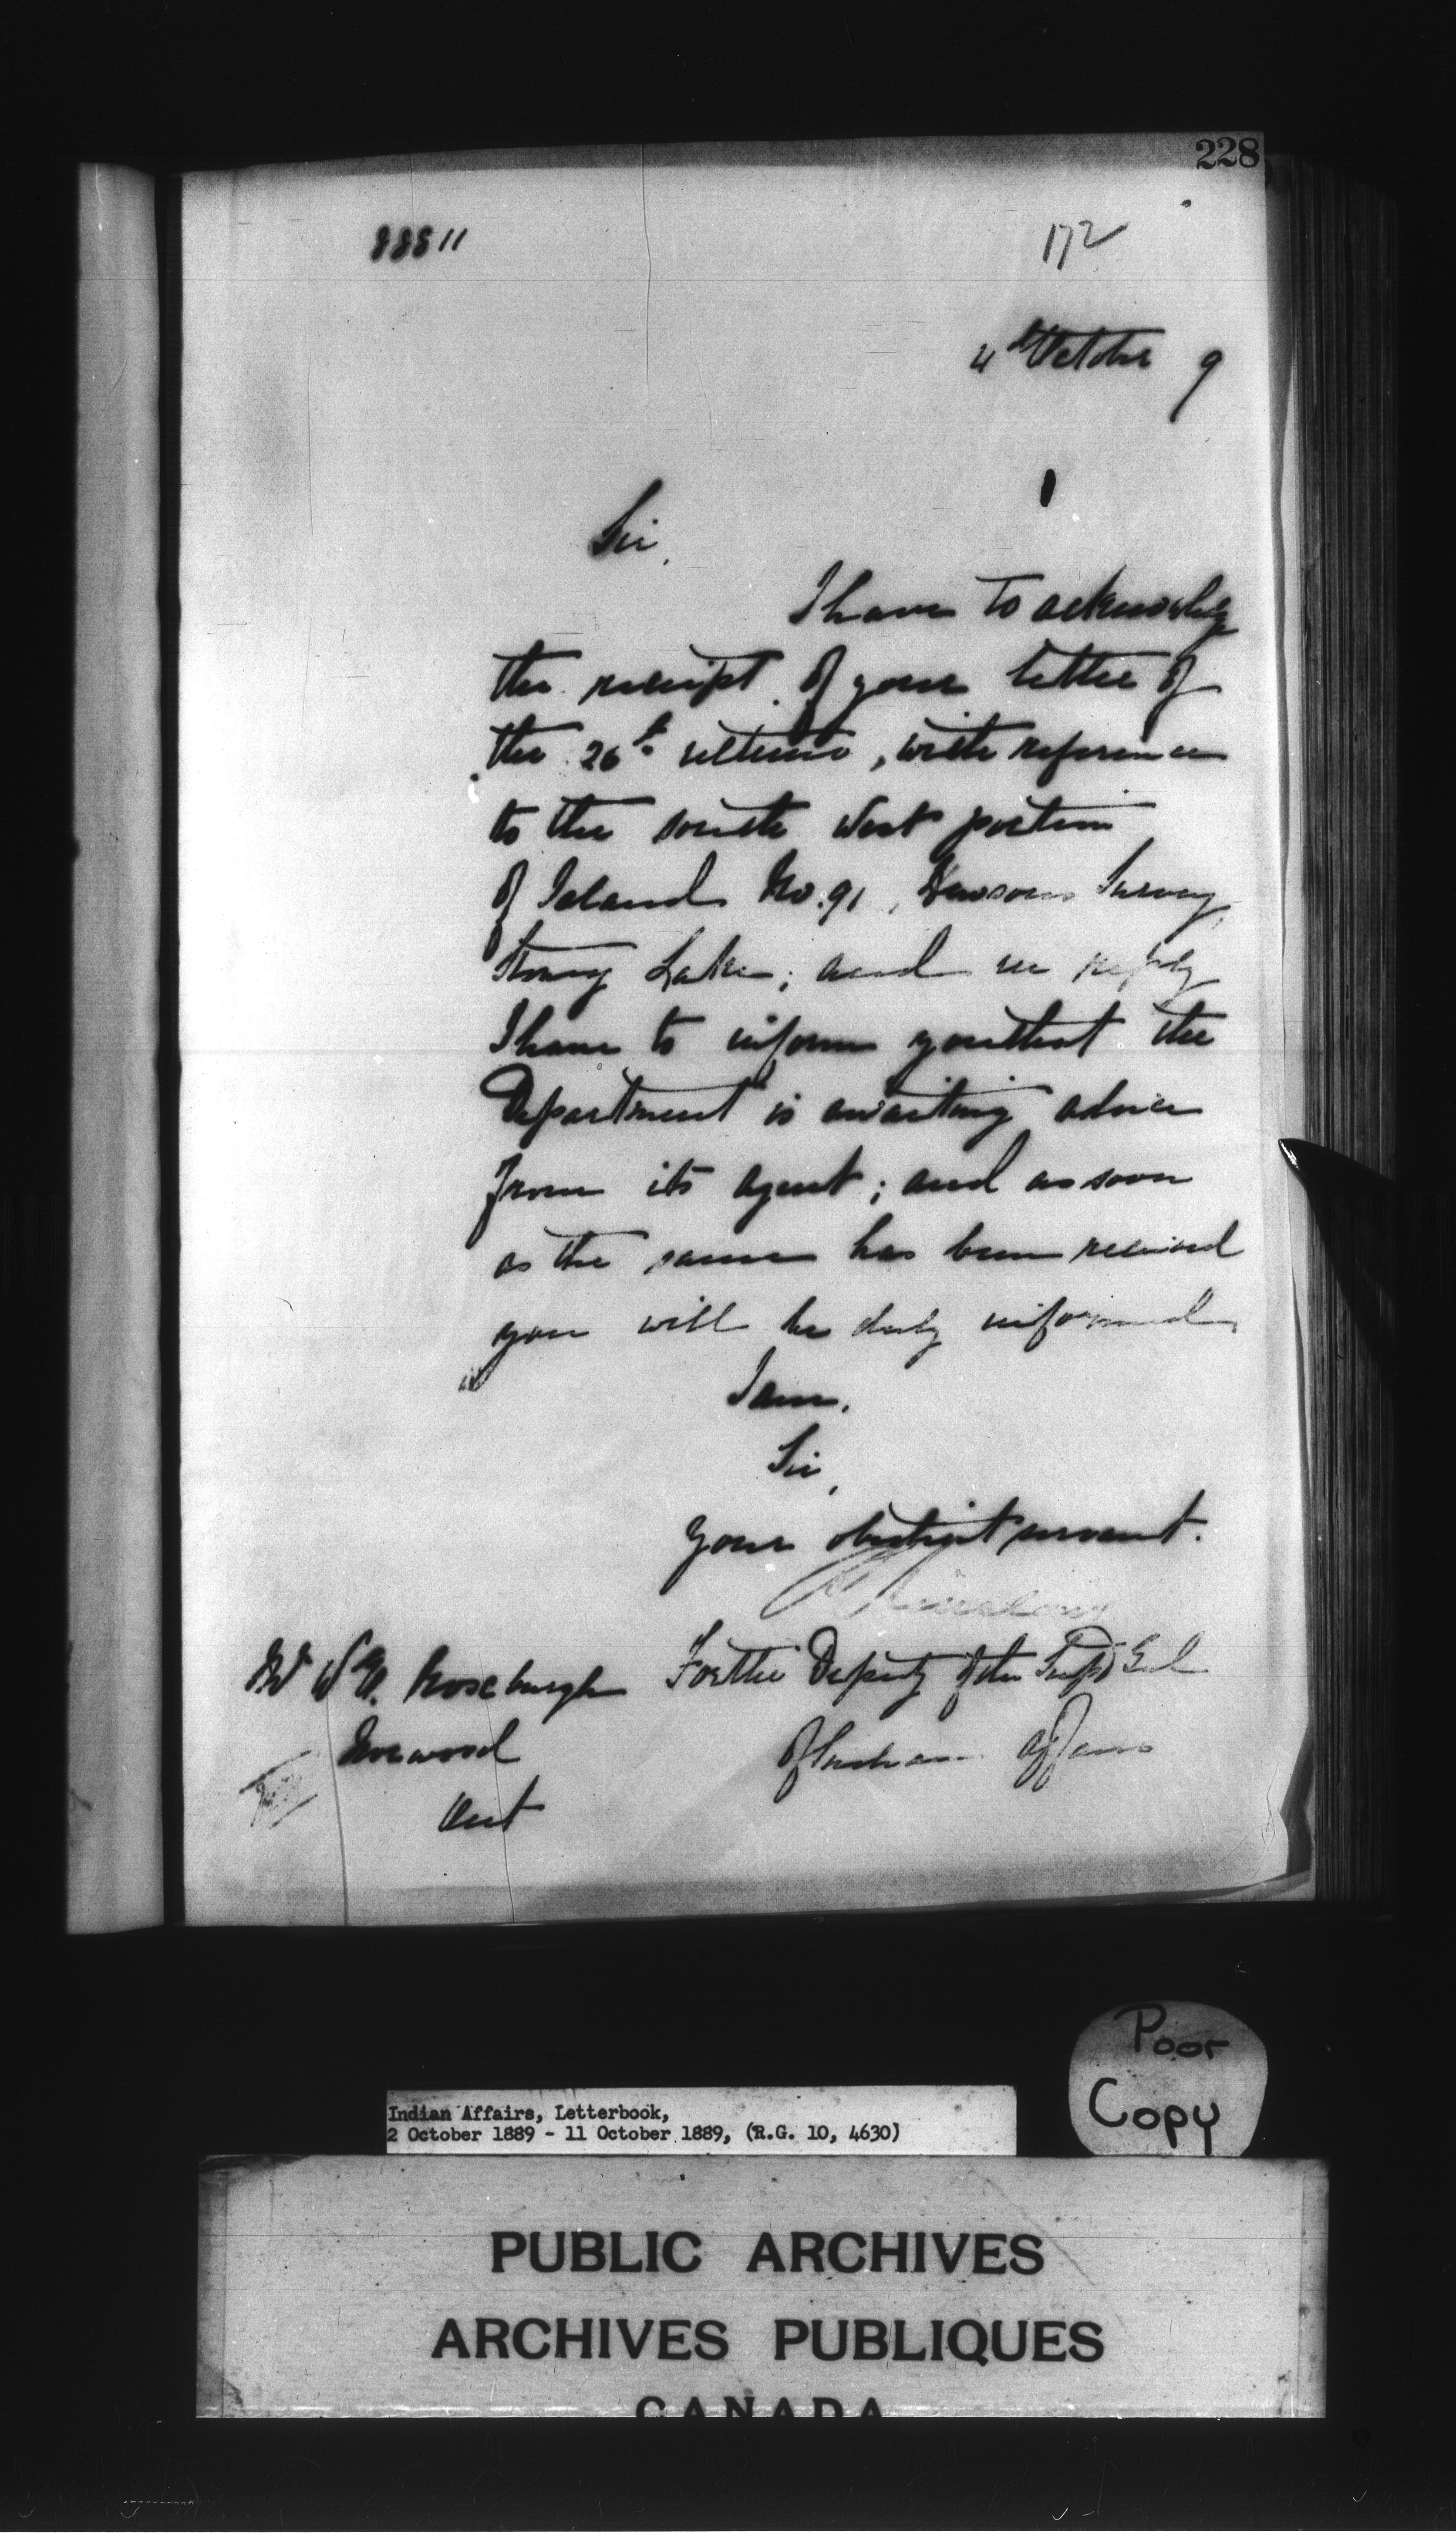 228
88811
172
4th October 9
Sir,
I have to acknowledge
the receipt of your letter of
the 26th ultimo, with reference
to the south West portion
of Island No. 91, Dawsons Survey,
Stoney Lake; and in reply
I have to inform you that the
Department is awaiting advice
from its agent; and as soon
as the same has been received
you will be duly informed
I am,
Sir,
Your obedient servant.
Mr W Roseburgh
For the Deputy of the Supt Genl
Norwood
of Indian Affairs
Ont
Poor
Copy
Indian Affairs, Letterbook,
2 October 1889 - 11 October 1889, (R.G. 10, 4630)
PUBLIC ARCHIVES
ARCHIVES PUBLIQUES
CANADA